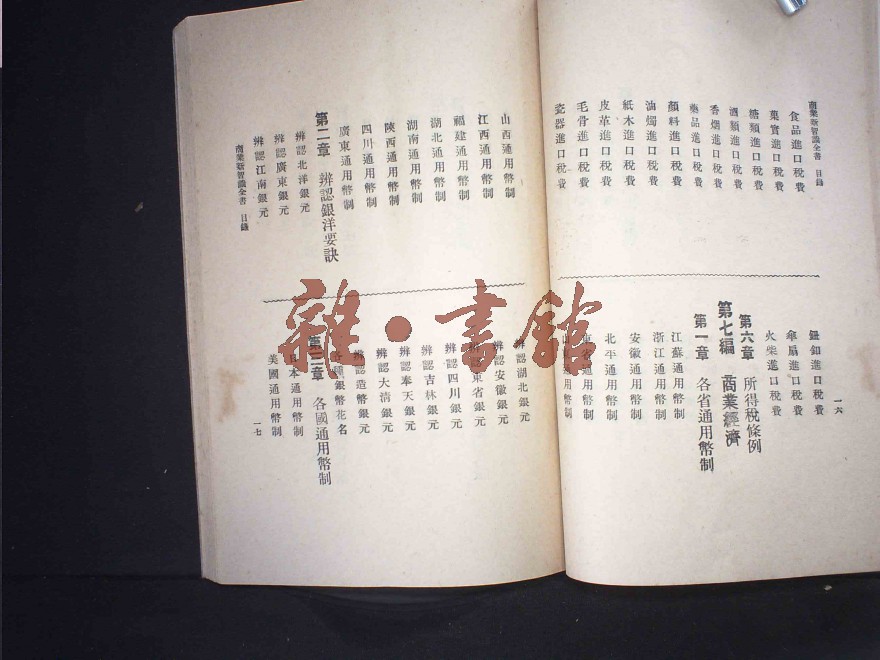 商業新智識全書 目錄
一六
食品進口稅費
菓實進口稅費
糖類進口稅費
酒類進口稅費
香烟進口稅費
藥品進口稅費
顏料進口稅費
油燭進口稅費
紙木進口稅費
皮革進口稅費
毛骨進口稅費
瓷器進口稅費
鈕釦進口稅費
傘扇進口稅費
火柴進口稅費
第六章 所得稅條例
第七編 商業經濟
第一章 各省通用幣制
江蘇通用幣制
浙江通用幣制
安徽通用幣制
北平通用幣制
東省通用幣制
通用幣制
山西通用幣制
江西通用幣制
福建通用幣制
湖北通用幣制
湖南通用幣制
陝西通用幣制
四川通用幣制
廣東通用幣制
第二章 辨認銀洋要訣
辨認北洋銀元
辨認廣東銀元
辨認江南銀元
辨認湖北銀元
辨認安徽銀元
辨認東省銀元
辨認四川銀元
辨認吉林銀元
辨認奉天銀元
辨認大清銀元
辨認造幣銀元
各種銀幣花名
第三章 各國通用幣制
日本通用幣制
美國通用幣制
商業新智識全書 目錄
一七
雜·書館